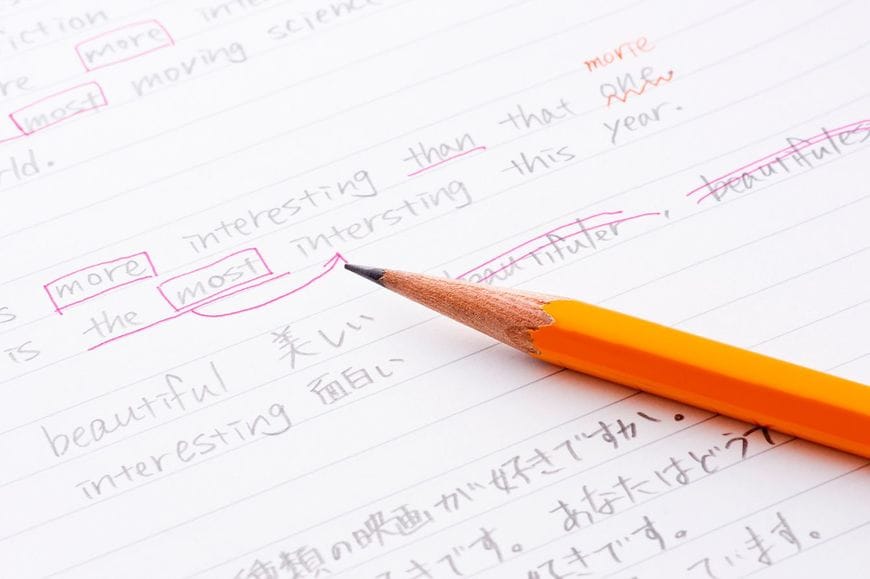 iction
re more inte
most moving science
rld.
movie
s more interesting than that one
is the most intersting this year.
beautiful 美しい beautifuler, beautifules
interesting 面白い
種類の映画が好きですか。
きです。あなたはどう
好きです。
ています。